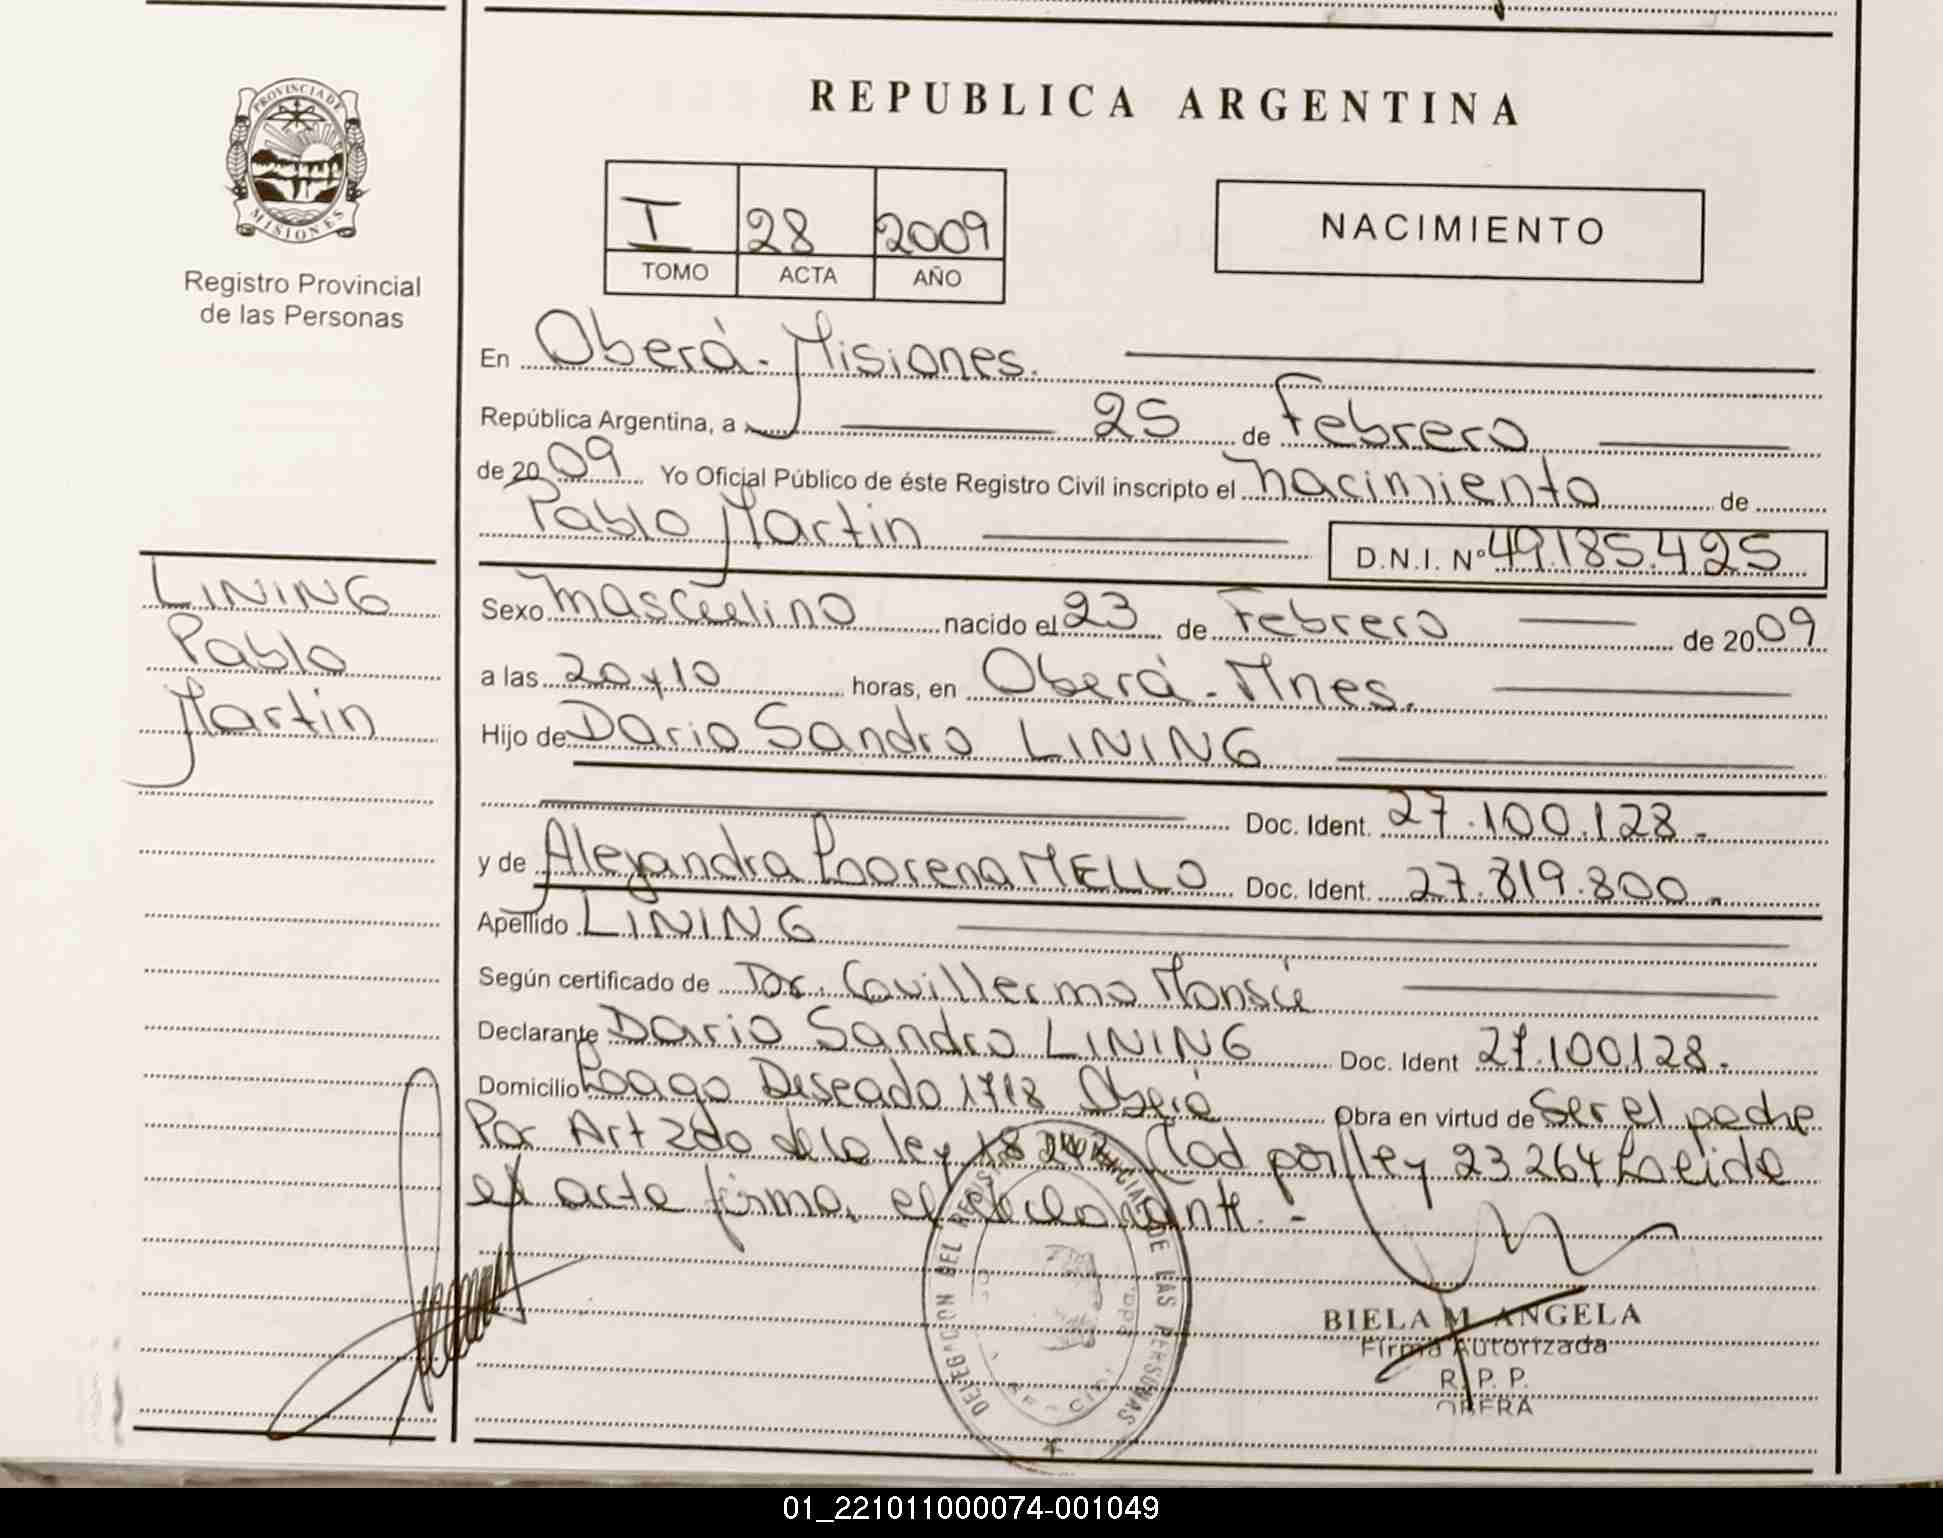 PROVINCIA DE
MISIONES
Registro Provincial
de las Personas
REPUBLICA ARGENTINA
I 28 2009
TOMO ACTA AÑO
NACIMIENTO
En Oberá - Misiones.
República Argentina, a 25 de Febrero
de 2009 Yo Oficial Público de éste Registro Civil inscripto el nacimiento de
Pablo Martin D.N.I. Nº 49.185.425
LINING
Pablo
Martin
Sexo masculino nacido el 23 de Febrero de 2009
a las 20 y 10 horas, en Oberá - Mnes.
Hijo de Dario Sandro LINING
Doc. Ident. 27.100.128.-
y de Alejandra Lorena MELLO Doc. Ident. 27.819.800.-
Apellido LINING
Según certificado de Dr. Guillermo
Declarante Dario Sandro LINING Doc. Ident 27.100.128.-
Domicilio Lago Deseado 1718 Oberá Obra en virtud de Ser el padre
Por Art 2do de la ley 18 por ley 23264 Leida
el acta firma, el declarante.-
DELEGACION DEL REGISTRO PROVINCIAL DE LAS PERSONAS
BIELA M. ANGELA
Firma Autorizada
R. P. P.
OBERA
01_221011000074-001049